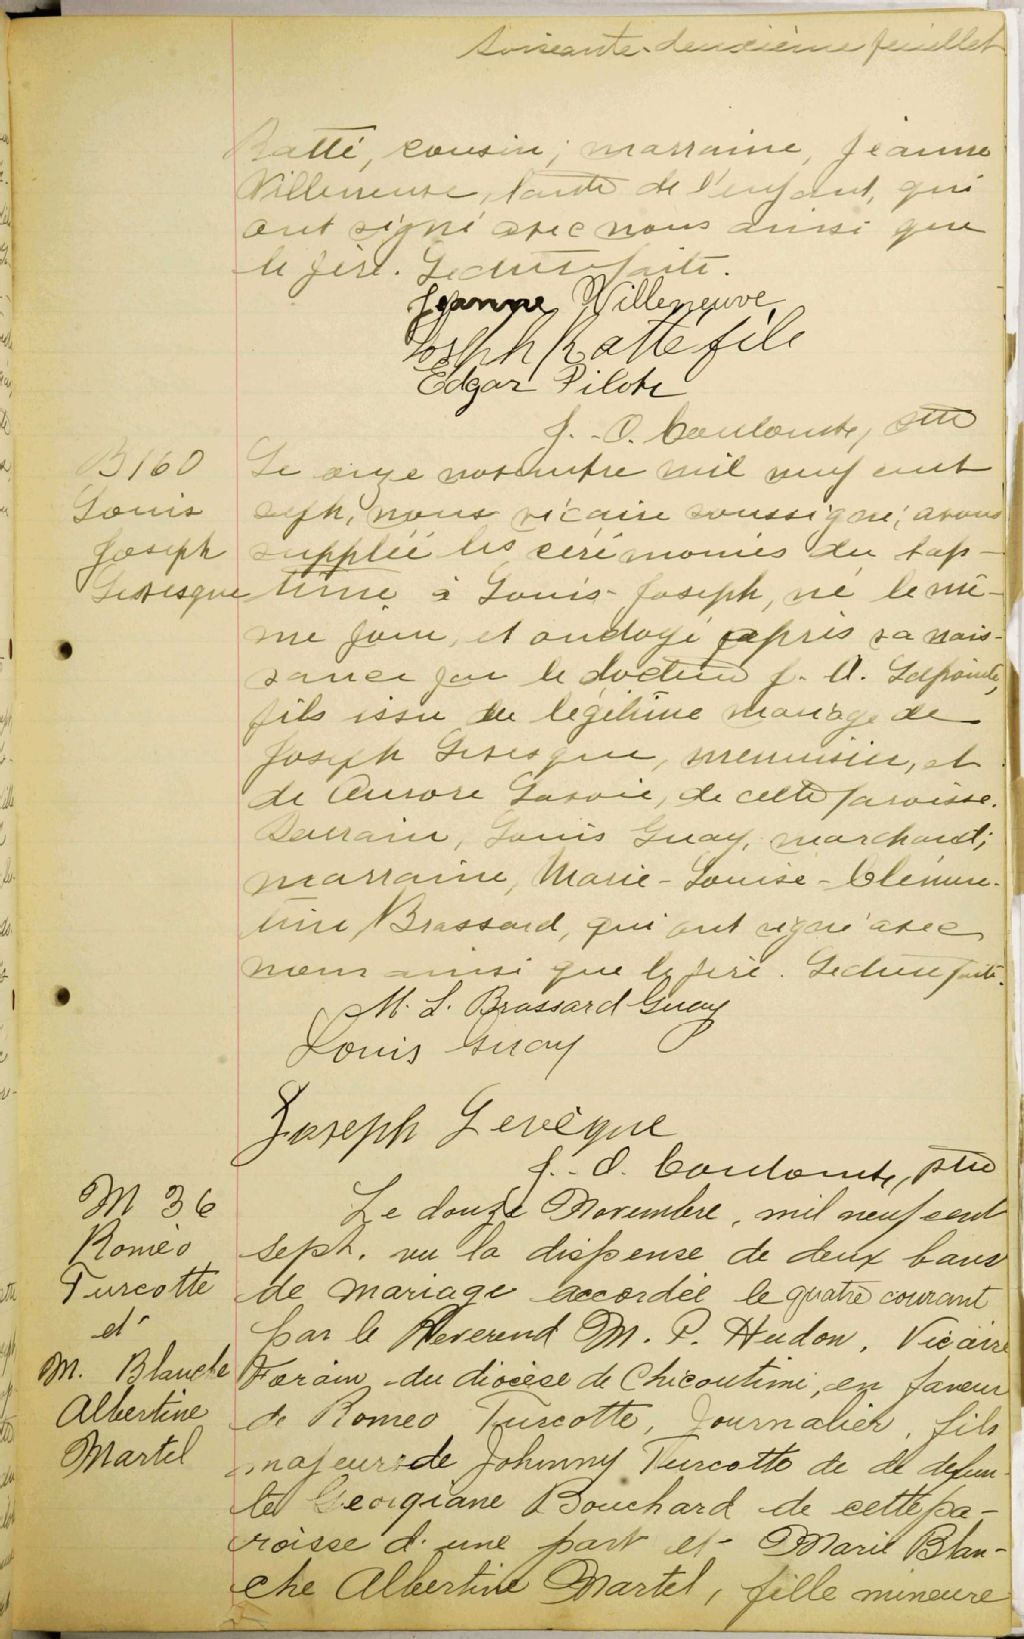 Soixante-deuxième feuillet
Ratté, cousin; marraine, Jeanne
Villeneuve, tante de l'enfant, qui
ont signé avec nous ainsi que
le père. Lecture faite.
Jeanne Villeneuve
Joseph Ratté fils
Edgar Pilote
J.-O. Coulombe, ptre
B 160
Louis
Joseph
Levesque
Le onze novembre mil neuf cent
sept, nous vicaire soussigné, avons
suppléé les cérémonies du bap-
tême à Louis-Joseph, né le mê-
me jour, et ondoyé après sa nais-
sance par le docteur J. A. Lapointe,
fils issu du légitime mariage de
Joseph Levesque, menuisier, et
de Aurore Savoie, de cette paroisse.
Parrain, Louis Guay, marchand;
marraine, Marie-Louise-Clémen-
tine Brassard, qui ont signé avec
nous ainsi que le père. Lecture faite.
M. L. Brassard Guay
Louis Guay
Joseph Levèque
J.-O. Coulombe, ptre
M 36
Roméo
Turcotte
et
M. Blanche
Albertine
Martel
Le douze Novembre, mil neuf cent
sept. vu la dispense de deux bans
de mariage accordée le quatre courant
par le Reverend M. P. Hudon, Vicaire
Forain du diocèse de Chicoutimi, en faveur
de Romeo Turcotte, Journalier, fils
majeur de Johnny Turcotte de de defun-
te Georgiane Bouchard de cette pa-
roisse d'une part et Marie Blan-
che Albertine Martel, fille mineure